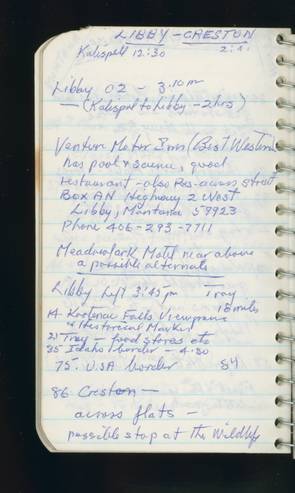 LIBBY - CRESTON
Kalispell 12:30
Libby 02 - 3.10pm
- (Kalispel to Libby - 2 hrs)
Venture Motor Inn (Best Western
has pool & sauna, good
restaurant - also Res. across street
Box AN Highway 2 West
Libby, Montana 59923
Phone 406-293-7711
Meadowlark Motel near above
a possible alternate
Libby Left 3:45pm Troy
18 miles
14. Kootenai Falls Viewpoint
& Historical Marker
Troy - food stores etc
35 Idaho border - 4.30
75. U.S.A border 84
86. Creston -
across flats -
possible stop at the Wildlife